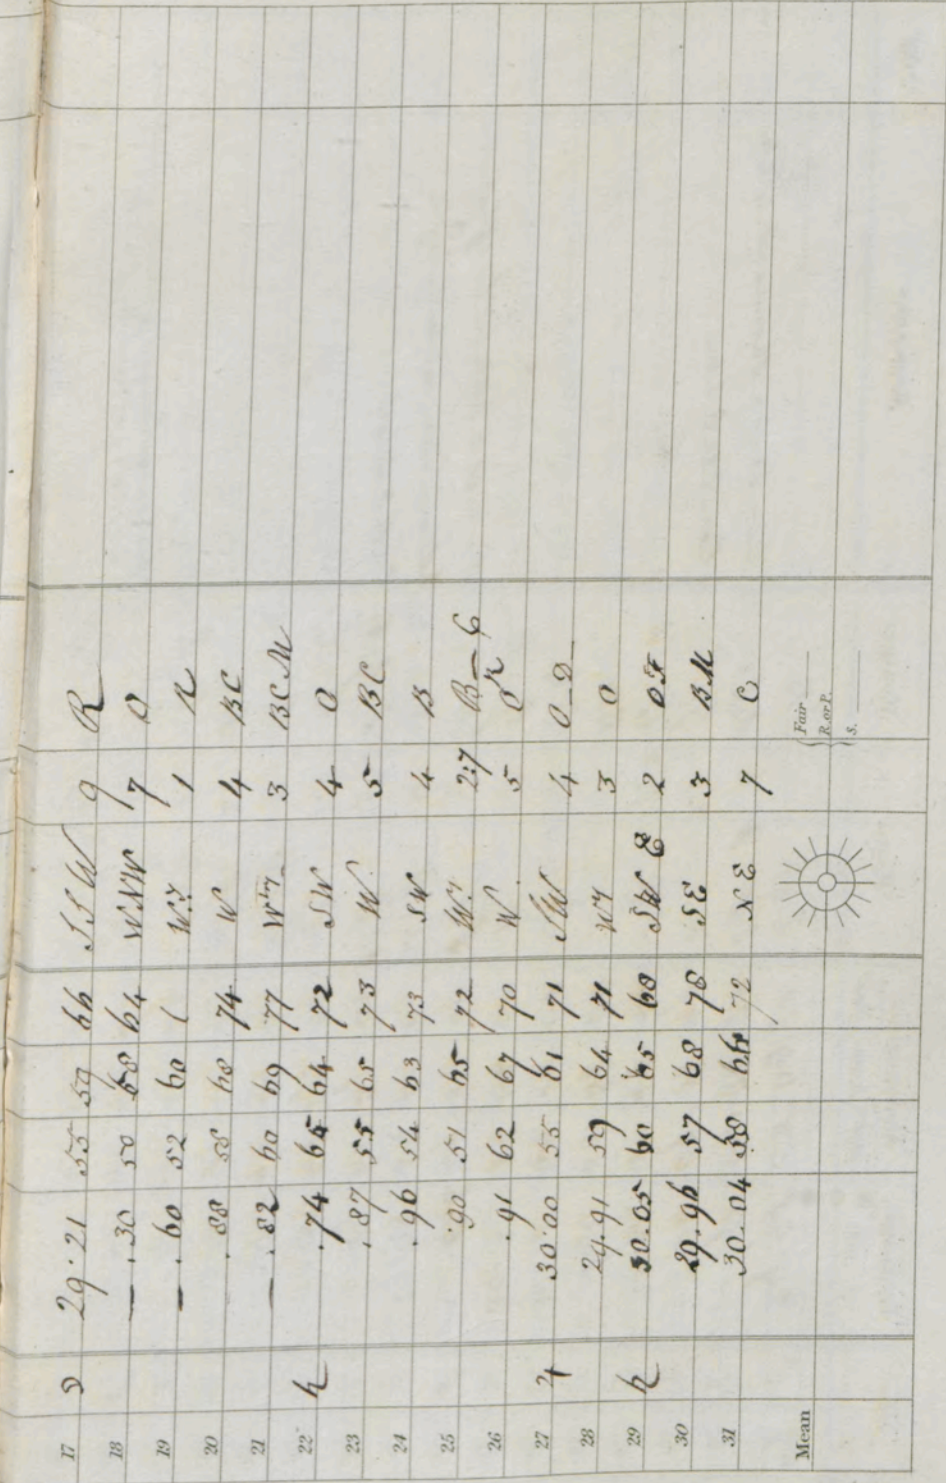 17 29.21 55 59 66 SSW 9 R
18 — .30 50 58 64 WNW 7 O
19 — .60 52 60 Wy 1 R
20 .88 58 68 74 W 4 BC
21 — .82 60 69 77 Wly 3 BCM
22 ♄ .74 64 72 SW 4 O
23 .87 55 65 73 W 5 BC
24 .96 54 63 73 SW 4 B
25 .90 51 65 72 Wy 2:7 B—C
26 .91 62 67 70 W 5 OR
27 ♃ 30.00 55 61 71 SW 4 O D
28 29.91 59 64 71 Wy 3 O
29 ♄ 30.05 60 65 SW 2 OF
30 29.96 57 68 78 SE 3 BM
31 30.04 58 72 NE 7 C
Mean
Fair
R. or P.
S.